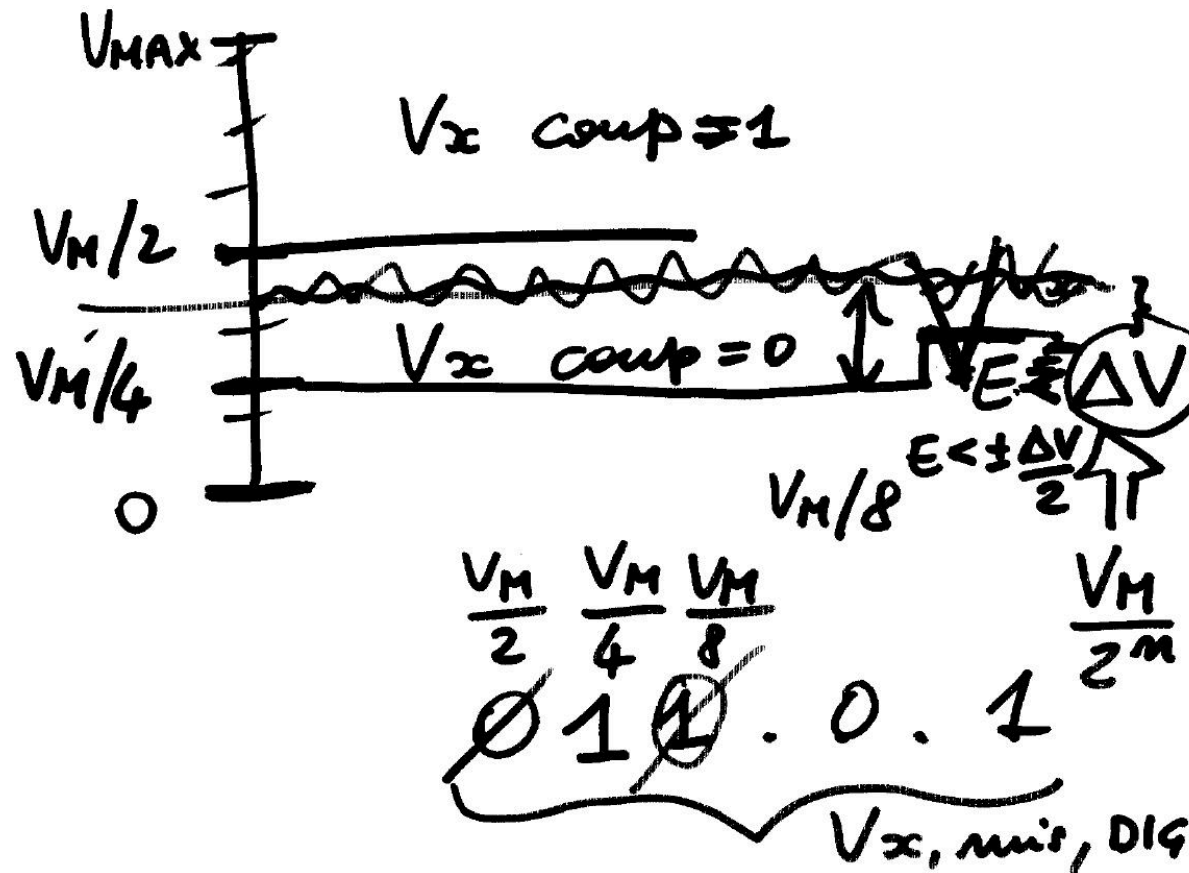 VMAX
Vx comp = 1
VM/2
Vx comp = 0
VM/4
E
ΔV
E < ± ΔV/2
0
VM/8
VM/2 VM/4 VM/8
VM/2^n
0 1 1 . 0 . 1
Vx, mis, DIG